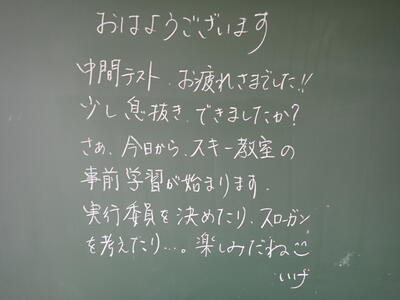 おはようございます
中間テスト、お疲れさまでした!!
少し息抜き、できましたか?
さぁ、今日から、スキー教室の
事前学習が始まります。
実行委員を決めたり、スローガン
を考えたり…。楽しみだね
いげ